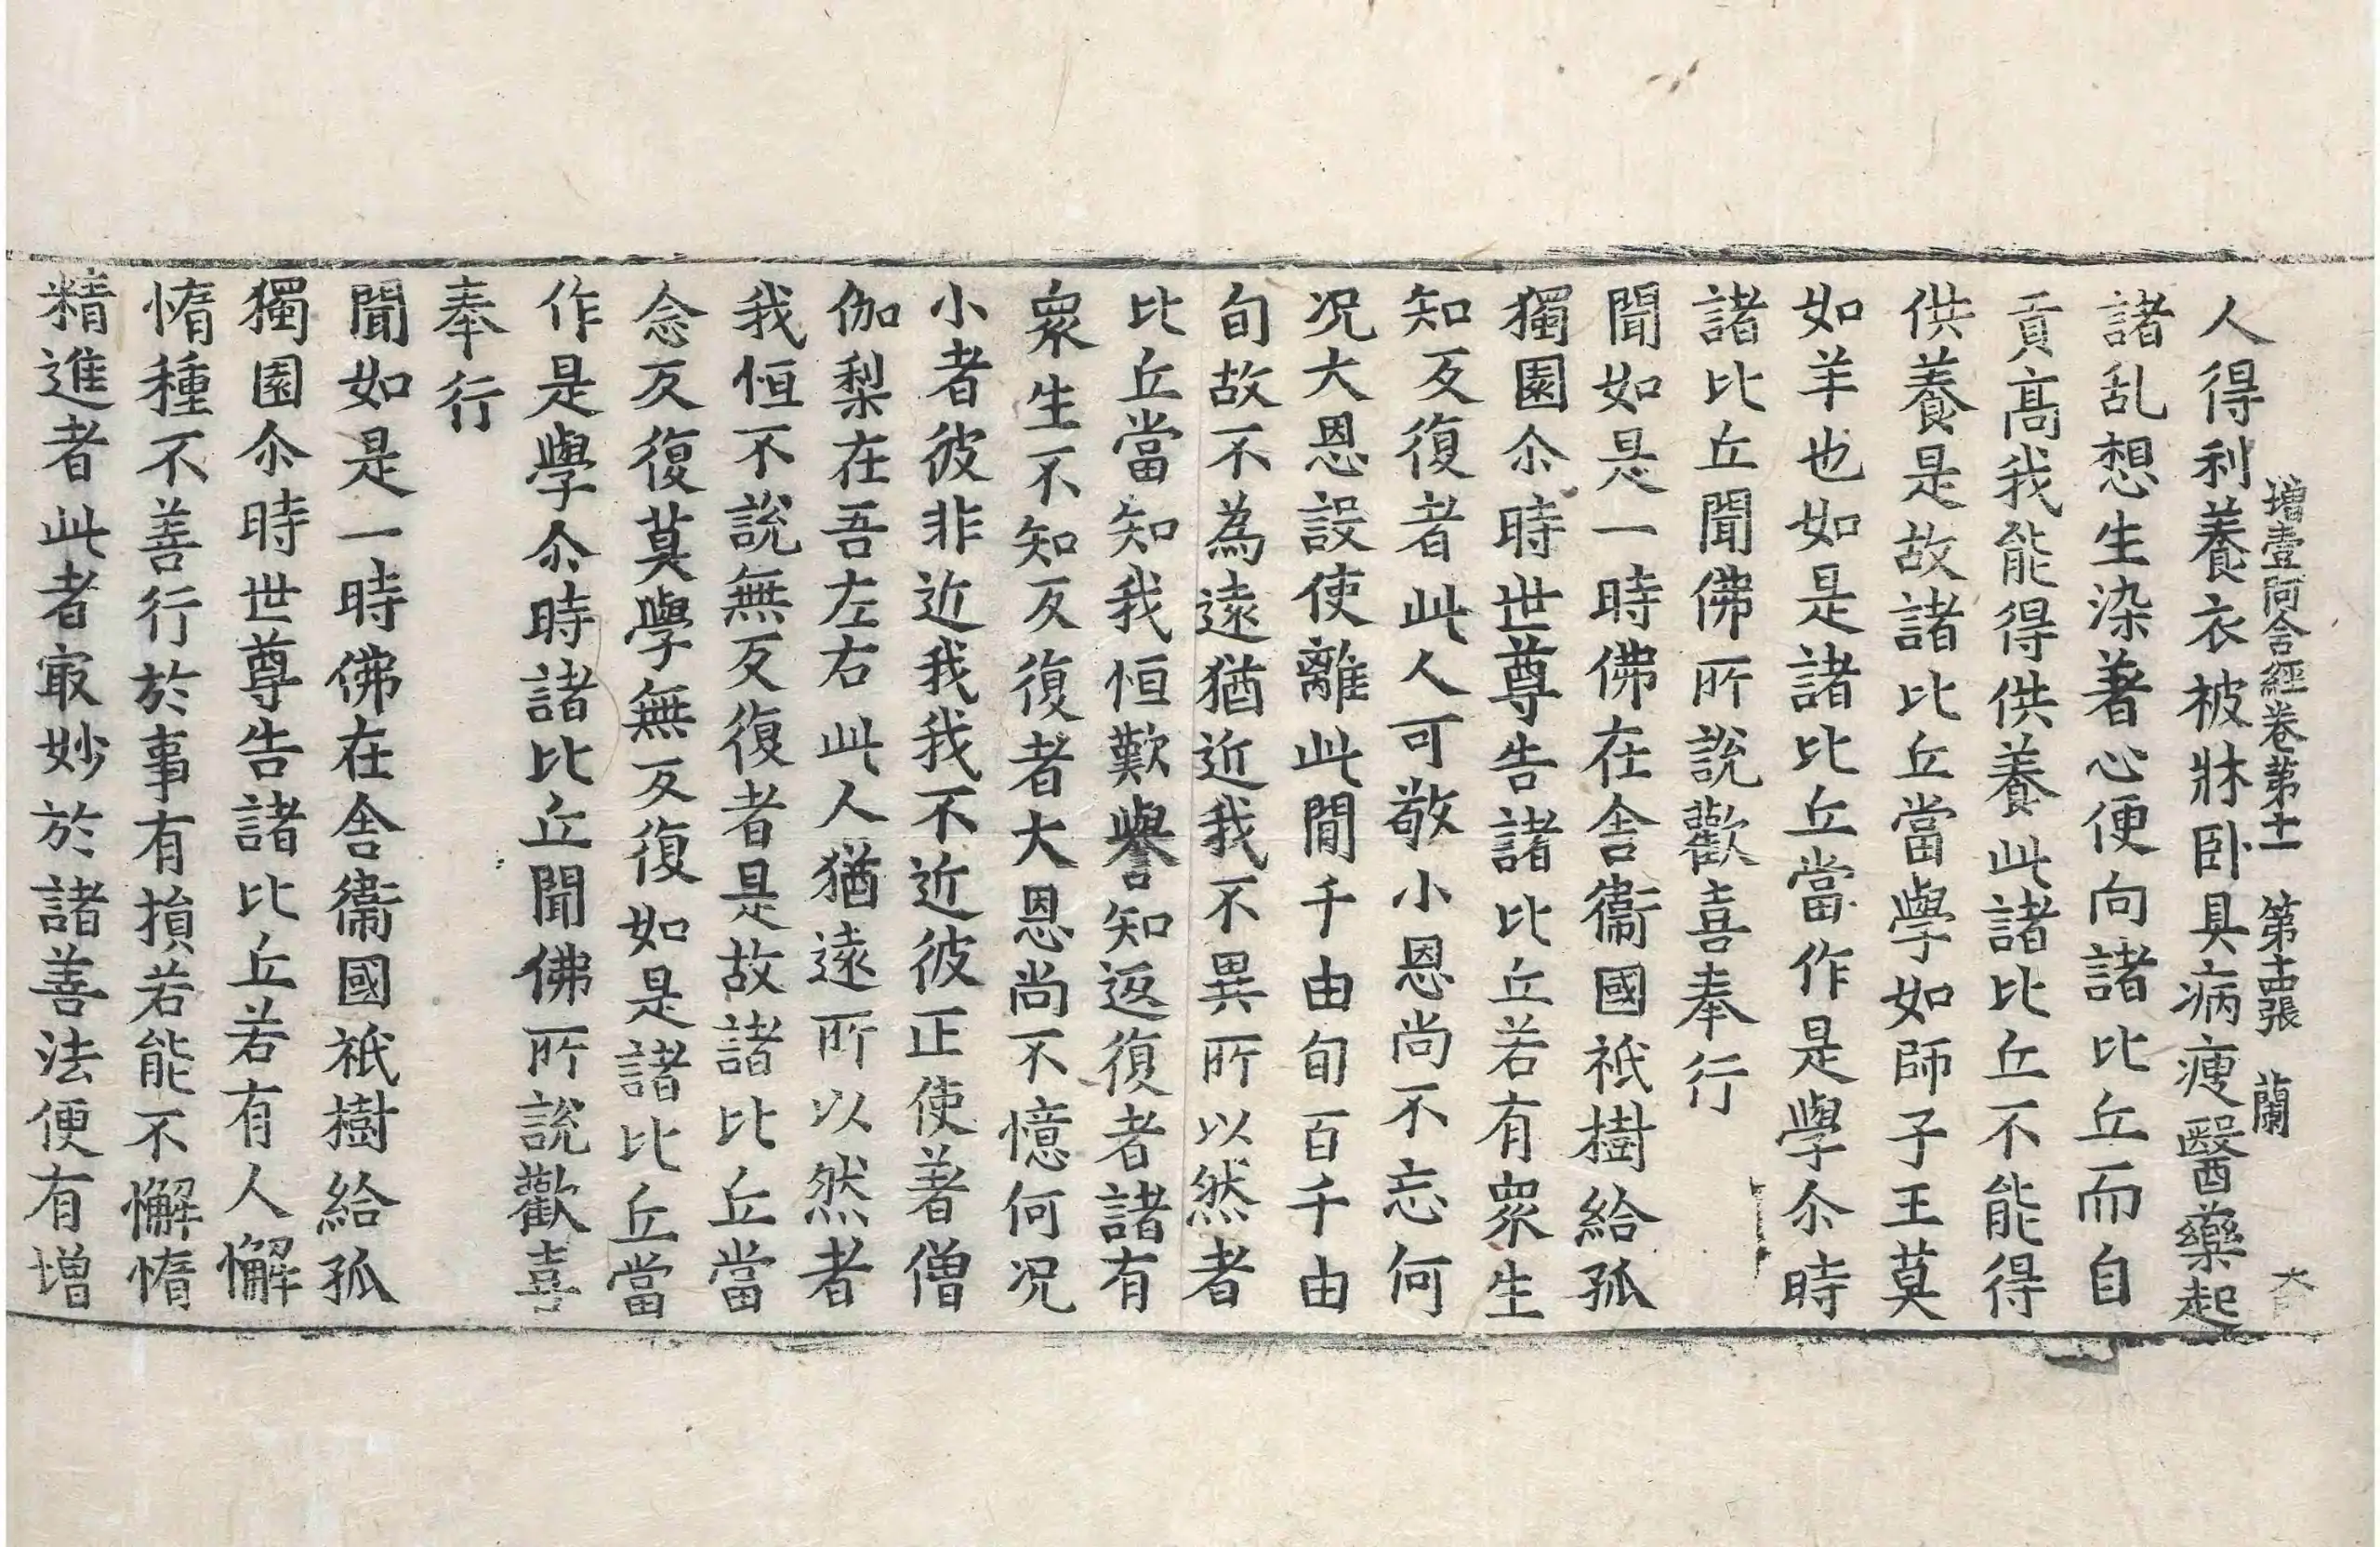 增壹阿含經卷第十一 第十四張 蘭
人得利養衣被牀卧具病瘦醫藥起
諸乱想生染著心便向諸比丘而自
貢高我能得供養此諸比丘不能得
供養是故諸比丘當學如師子王莫
如羊也如是諸比丘當作是學尒時
諸比丘聞佛所說歡喜奉行
聞如是一時佛在舍衞國祇樹給孤
獨園尒時世尊告諸比丘若有衆生
知反復者此人可敬小恩尚不忘何
况大恩設使離此閒千由旬百千由
旬故不為遠猶近我不異所以然者
比丘當知我恒歎譽知返復者諸有
衆生不知反復者大恩尚不憶何况
小者彼非近我我不近彼正使著僧
伽梨在吾左右此人猶遠所以然者
我恒不說無反復者是故諸比丘當
念反復莫學無反復如是諸比丘當
作是學尒時諸比丘聞佛所說歡喜
奉行
聞如是一時佛在舍衞國祇樹給孤
獨園尒時世尊告諸比丘若有人懈
惰種不善行於事有損若能不懈惰
精進者此者㝡妙於諸善法便有增